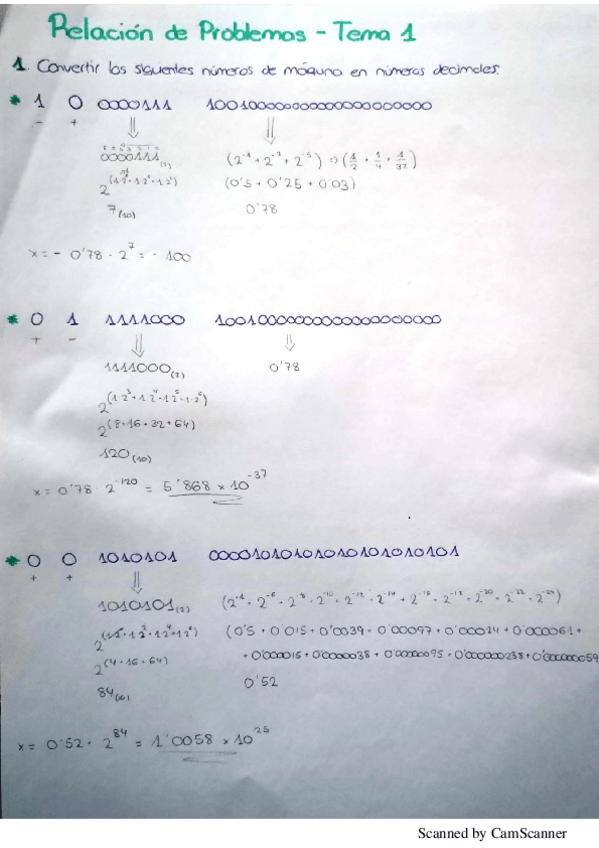 Relación de Problemas - Tema 1
1. Convertir los siguientes números de máquina en números decimales.
* 1 0 0000111 10010000000000000000000
- +
0000111(2) (2^-1 + 2^-2 + 2^-5) => (1/2 + 1/4 + 1/32)
(0'5 + 0'25 + 0'03)
7(10) 0'78
x = - 0'78 · 2^7 = - 100
* 0 1 1111000 10010000000000000000000
+ -
1111000(2) 0'78
2^(1·2^3+1·2^4+1·2^5+1·2^6)
2^(8+16+32+64)
120(10)
x = 0'78 · 2^-120 = 5'868 × 10^-37
* 0 0 1010101 00001010101010101010101
+ +
1010101(2) (2^-1 + 2^-6 + 2^-8 + 2^-10 + 2^-12 + 2^-14 + 2^-16 + 2^-18 + 2^-20 + 2^-22 + 2^-24)
(0'5 + 0'015 + 0'0039 + 0'00097 + 0'00024 + 0'000061 +
2^(4+16+64) + 0'000015 + 0'0000038 + 0'00000095 + 0'000000238 + 0'000000059
84(10) 0'52
x = 0'52 · 2^84 = 1'0058 × 10^25
Scanned by CamScanner